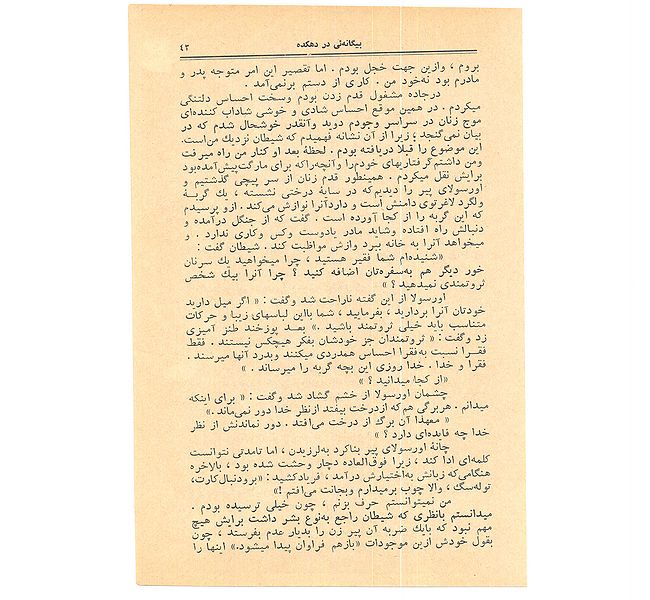 بیگانه‌ئی در دهکده
۴۳
بروم ، وازین جهت خجل بودم . اما تقصیر این امر متوجه پدر و
مادرم بود نه‌خود من . کاری از دستم برنمی‌آمد .
درجاده مشغول قدم زدن بودم وسخت احساس دلتنگی
میکردم . در همین موقع احساس شادی و خوشی شاداب کننده‌ای
موج زنان در سراسر وجودم دوید وآنقدر خوشحال شدم که در
بیان نمی‌گنجد ؛ زیرا از آن نشانه فهمیدم که شیطان نزدیك من‌است.
این موضوع را قبلا دریافته بودم . لحظهٔ بعد او کنار من راه میرفت
ومن داشتم‌گرفتاریهای خودم‌را وآنچه‌راکه برای مارگت‌پیش‌آمده‌بود
برایش نقل میکردم . همینطور قدم زنان از سر پیچی گذشتیم و
اورسولای پیر را دیدیم‌که در سایهٔ درختی نشسته ، یك گربهٔ
ولگرد لاغرتوی دامنش است و داردآنرا نوازش می‌کند . ازو پرسیدم
که این گربه را از کجا آورده است . گفت که از جنگل درآمده و
دنبالش راه افتاده وشاید مادر یادوست وکس وکاری ندارد . و
میخواهد آنرا به خانه ببرد وازش مواظبت کند . شیطان گفت :
«شنیده‌ام شما فقیر هستید ، چرا میخواهید یك سرنان
خور دیگر هم به‌سفره‌تان اضافه کنید ؟ چرا آنرا بیك شخص
ثروتمندی نمیدهید ؟ »
اورسولا از این گفته ناراحت شد وگفت : « اگر میل دارید
خودتان آنرا بردارید ، بفرمایید ، شما بااین لباسهای زیبا و حرکات
متناسب باید خیلی ثروتمند باشید .» بعد پوزخند طنز آمیزی
زد وگفت : « ثروتمندان جز خودشان بفکر هیچکس نیستند . فقط
فقرا نسبت به‌فقرا احساس همدردی میکنند وبدرد آنها میرسند .
فقرا و خدا . خدا روزی این بچه گربه را میرساند . »
«از کجا میدانید ؟ »
چشمان اورسولا از خشم گشاد شد وگفت : « برای اینکه
میدانم . هربرگی هم‌که ازدرخت بیفتد ازنظر خدا دور نمی‌ماند .»
« معهذا آن برگ از درخت می‌افتد . دور نماندنش از نظر
خدا چه فایده‌ای دارد ؟ »
چانهٔ اورسولای پیر بناکرد به‌لرزیدن ، اما تامدتی نتوانست
کلمه‌ای ادا کند ، زیرا فوق‌العاده دچار وحشت شده بود ، بالاخره
هنگامی‌که زبانش به‌اختیارش درآمد ، فریادکشید : «برودنبال‌کارت،
توله‌سگ ، والا چوب برمیدارم وبجانت می‌افتم !»
من نمیتوانستم حرف بزنم ، چون خیلی ترسیده بودم .
میدانستم بانظری که شیطان راجع به‌نوع بشر داشت برایش هیچ
مهم نبود که بایك ضربه آن پیر زن را بدیار عدم بفرستد ، چون
بقول خودش ازین موجودات «بازهم فراوان پیدا میشود.» اینها را